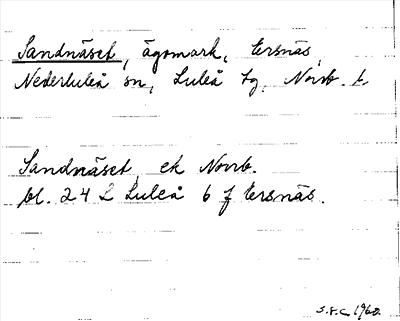 Sandnäset, ägomark, Ersnäs,
Nederluleå sn, Luleå tg, Norrb. l.
Sandnäset, ek Norrb.
bl. 24 L Luleå 6 f Ersnäs.
S.F.C 1960.